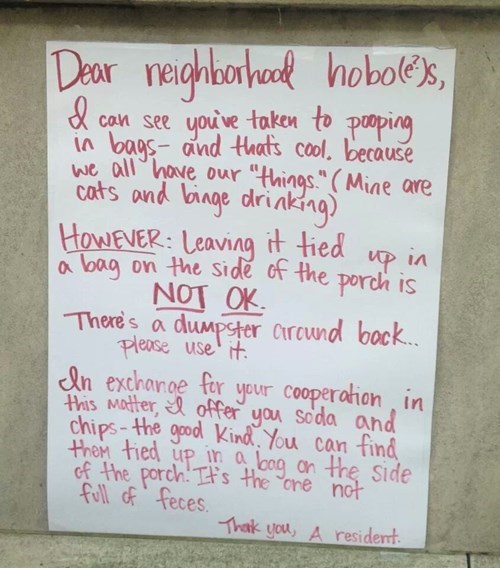 Dear neighborhood hobo(e?)s,
I can see you've taken to pooping
in bags- and that's cool, because
we all have our "things." (Mine are
cats and binge drinking)
HOWEVER: Leaving it tied up in
a bag on the side of the porch is
NOT OK.
There's a dumpster around back...
please use it.
In exchange for your cooperation in
this matter, I offer you soda and
chips- the good kind. You can find
them tied up in a bag on the side
of the porch. It's the one not
full of feces.
Thank you, A resident.